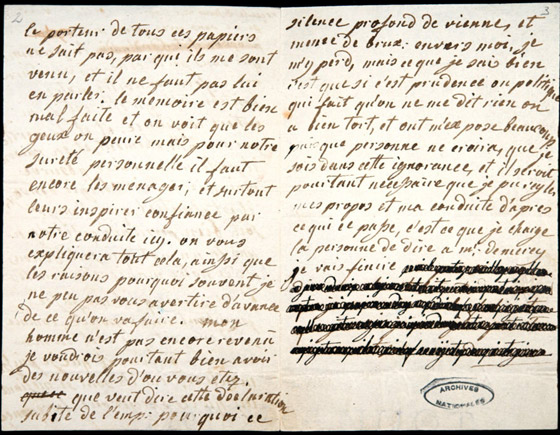 2
le porteur de tous ces papiers
ne sait pas, par qui ils me sont
venu, et il ne faut pas lui
en parler. le memoire est bien
mal faite et on voit que les
geux on peure mais pour notre
sureté personnelle il faut
encore les menager, et surtout
leurs inspirer confiance par
notre conduite icy. on vous
expliquera tout cela, ainsi que
les raisons pourquoi souvent je
ne peu pas vous avertire d'avance
de ce qu'on va faire. mon
homme n'est pas encore revenu
je voudrois pourtant bien avoir
des nouvelles d'ou vous êtez.
que veut dire cette declaration
subite de l'emp: pourquoi ce
3
silence profond de vienne, et
meme de brux: envers moi, je
m'y perd, mais ce que je sais bien
c'est que si c'est prudence ou politique
qui fait qu'on ne me dit rien on
a bien tort, et ont m'expose beaucoup
puis que personne ne croira, que je
sois dans cette ignorance, et il seroit
pourtant necessaire que je puisse regler
mes propos et ma conduite d'apres
ce qui ce passe, c'est ce que je charge
la personne de dire a mr: demercy
je vais finire
ARCHIVES
NATIONALES